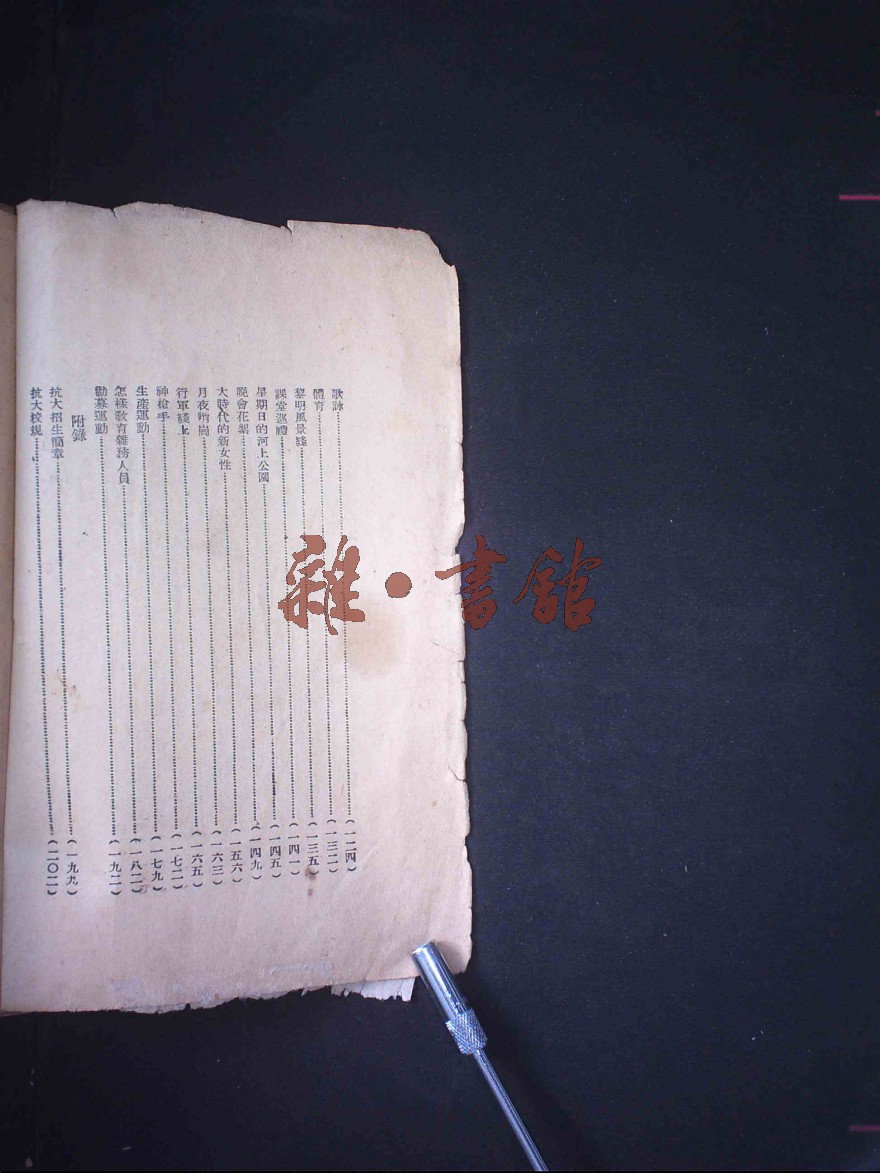 歌詠……(一二四)
體育……(一三二)
黎明風景綫……(一三五)
課堂巡禮……(一四一)
星期日的河上公園……(一四五)
晚會花絮……(一四九)
大時代的新女性……(一五六)
月夜哨崗……(一六三)
行軍綫上……(一六五)
神槍手……(一七二)
生產運動……(一七九)
怎樣教育雜務人員……(一八二)
勸募運動……(一九二)
附錄
抗大招生簡章……(一九九)
抗大校規……(二〇二)
雜·書館